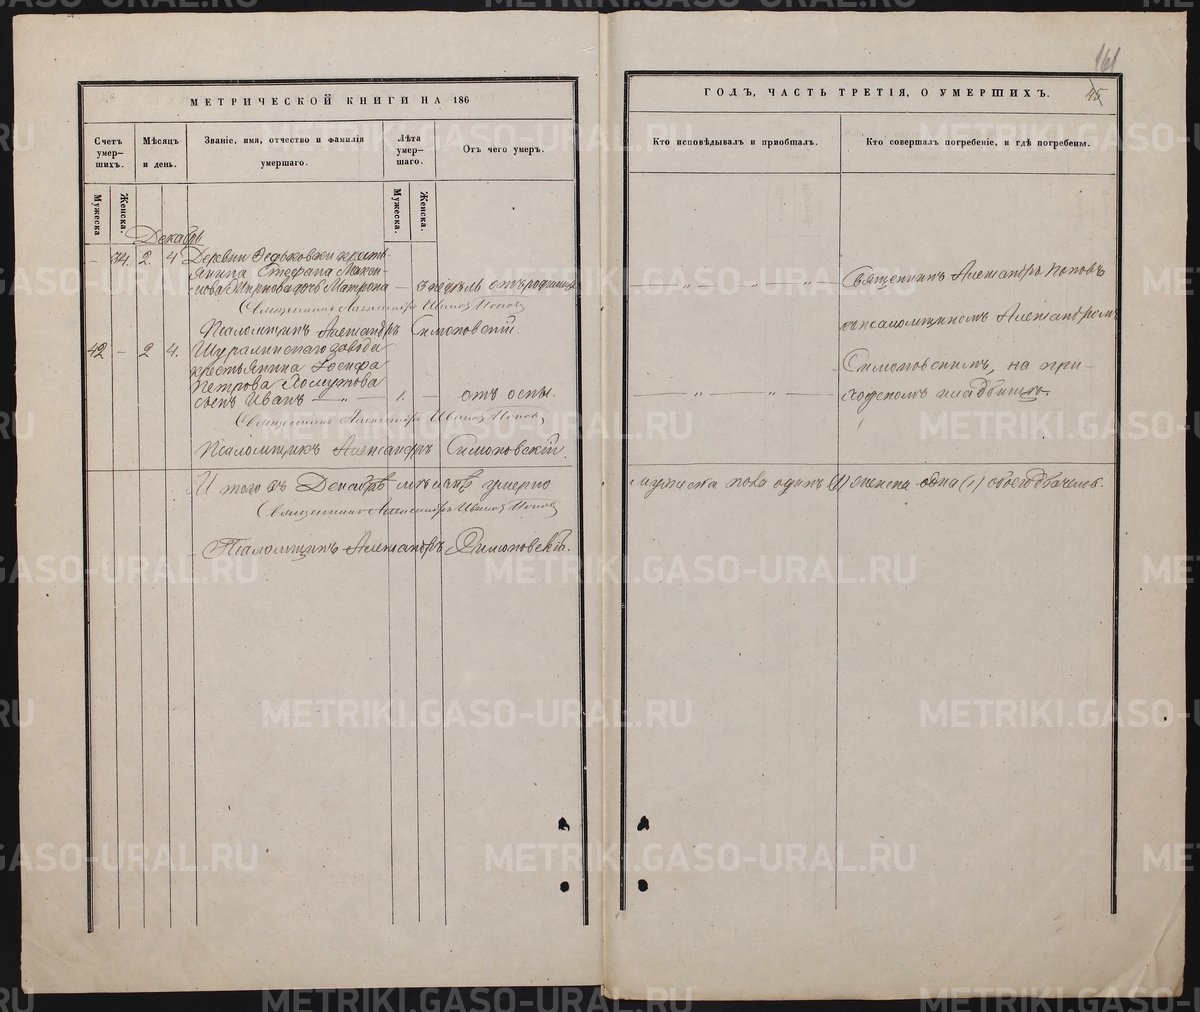 161
45
МЕТРИЧЕСКОЙ КНИГИ НА 186
ГОДЪ, ЧАСТЬ ТРЕТІЯ, О УМЕРШИХЪ.
Счетъ умер-шихъ.
Мѣсяцъ и день.
Званіе, имя, отчество и фамилія умершаго.
Лѣта умер-шаго.
Отъ чего умеръ.
Кто исповѣдывалъ и пріобщалъ.
Кто совершалъ погребеніе, и гдѣ погребены.
Мужеска
Женска.
Мужеска.
Женска.
Декабрь
— 34. 2. 4 Деревни Федьковки кресть
янина Стефана Макси
мова дочь Матрона — 3 недѣль отъ родимца
Священникъ Александръ Ивановъ Поповъ
Псаломщикъ Александръ Симоновскій.
42 — 2 4. Шуралинскаго завода
крестьянина Іосифа
Петрова Хомутова
сынъ Иванъ — „ — 1. — отъ оспы.
Священникъ Александръ Ивановъ Поповъ
Псаломщикъ Александръ Симоновскій
Священникъ Александръ Поповъ
съ псаломщикомъ Александромъ
Симоновскимъ, на при-
ходскомъ кладбищѣ.
Итого въ Декабрѣ мѣсяцѣ умерло
мужеска пола одинъ (1) женска одна (1) обоего два человѣ.
Священникъ Александръ Ивановъ Поповъ
Псаломщикъ Александръ Симоновскій.
METRIKI.GASO-URAL.RU